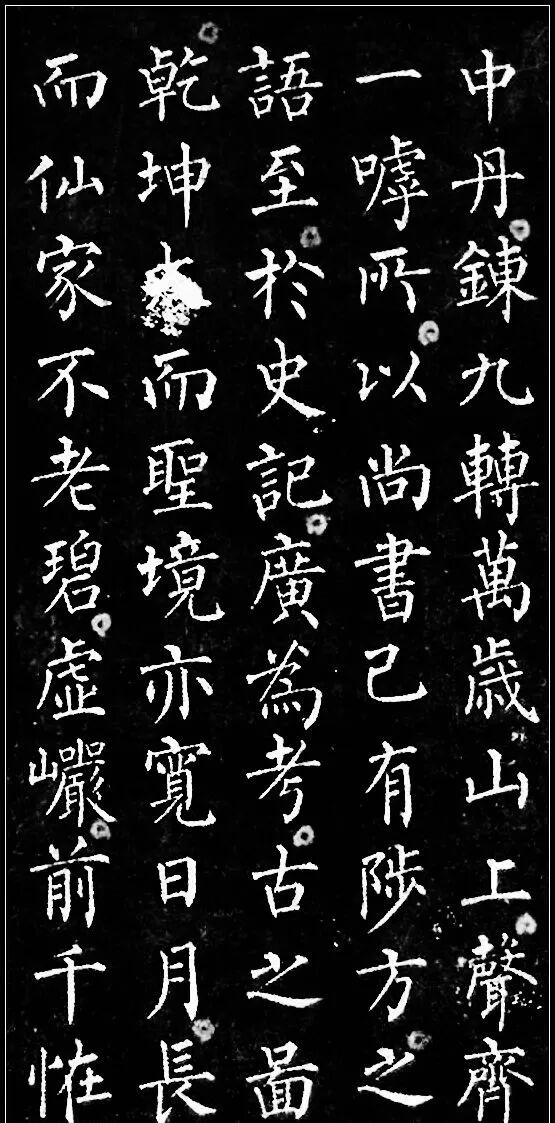 中丹鍊九轉萬歲山上聲齊
一嘑所以尚書已有陟方之
語至於史記廣為考古之圖
乾坤大而聖境亦寬日月長
而仙家不老碧虛巗前千恠